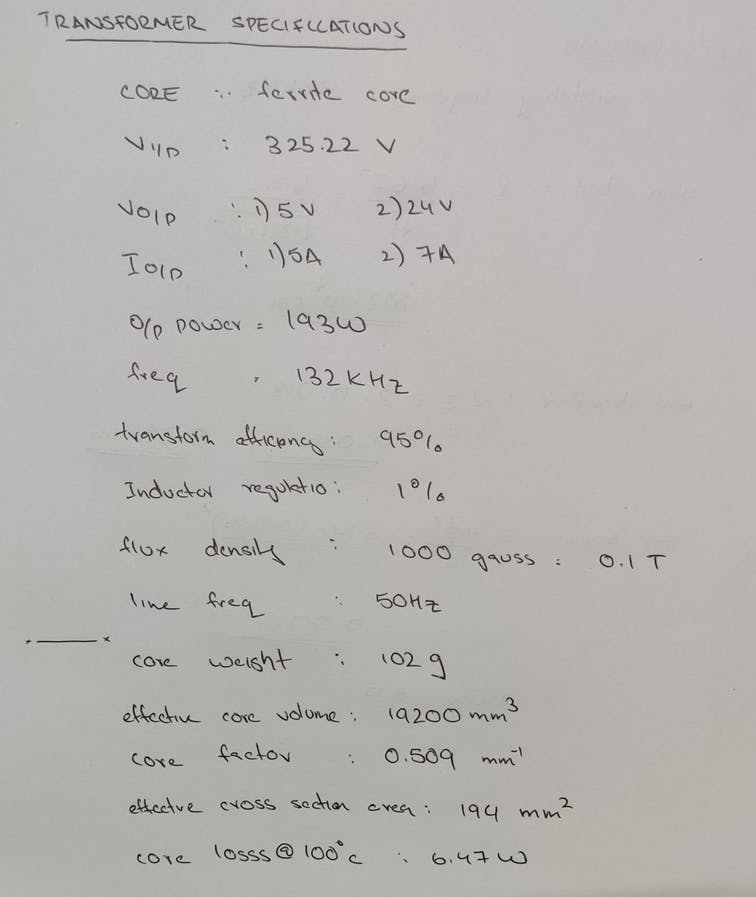 TRANSFORMER SPECIFICATIONS
CORE : ferrite core
VI/P : 325.22 V
VO/P : 1) 5V 2) 24V
IO/P : 1) 5A 2) 7A
O/P power = 193W
freq : 132KHZ
transform efficency : 95%
Inductor regulatio : 1%
flux density : 1000 gauss = 0.1 T
line freq : 50HZ
core weight : 102 g
effective core volume : 19200 mm³
core factor : 0.509 mm⁻¹
effective cross section area : 194 mm²
core losss @ 100°c : 6.47 W